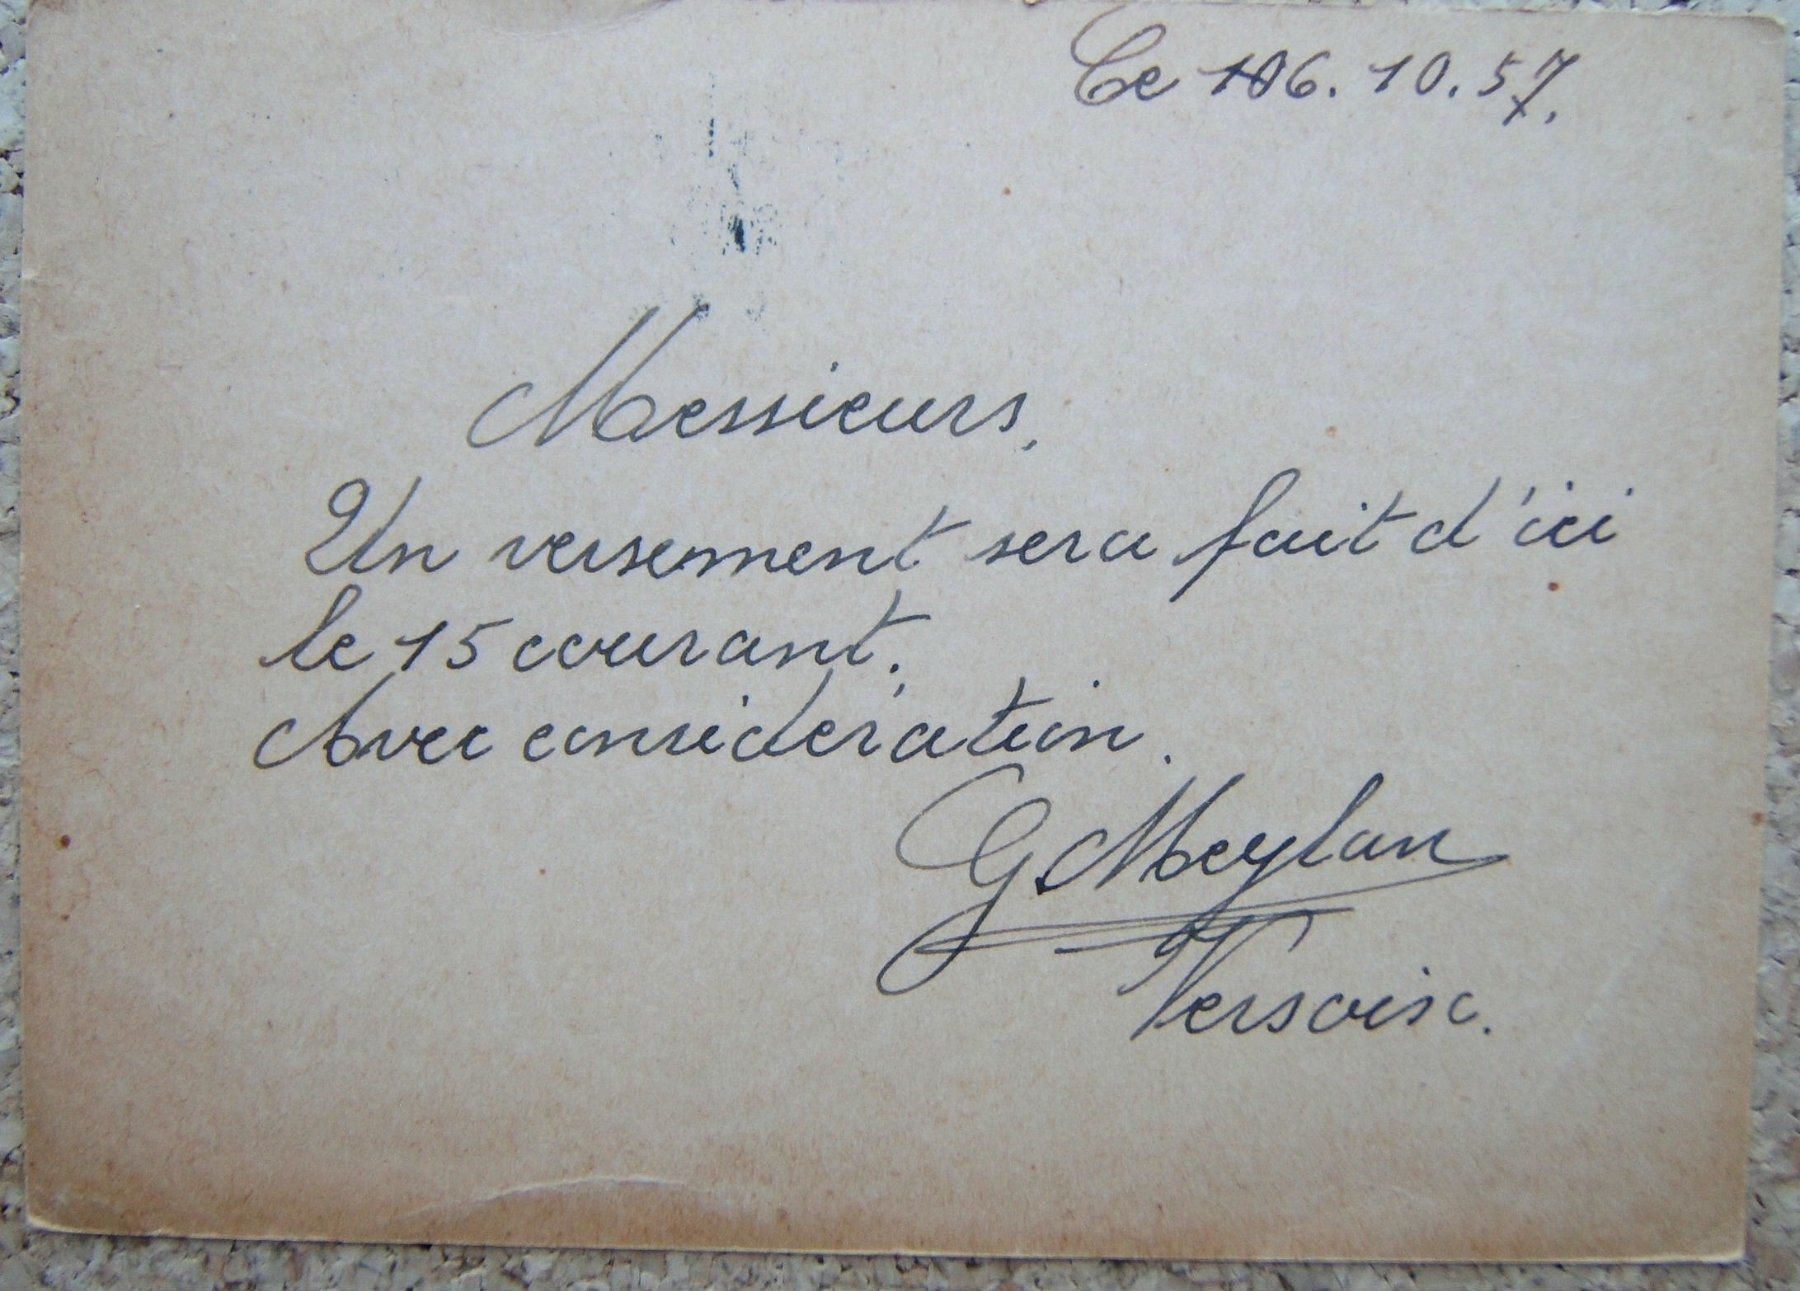 Ce 106.10.57.
Messieurs,
Un versement sera fait d'ici
le 15 courant.
Avec considération.
G. Meylan
Versoix.